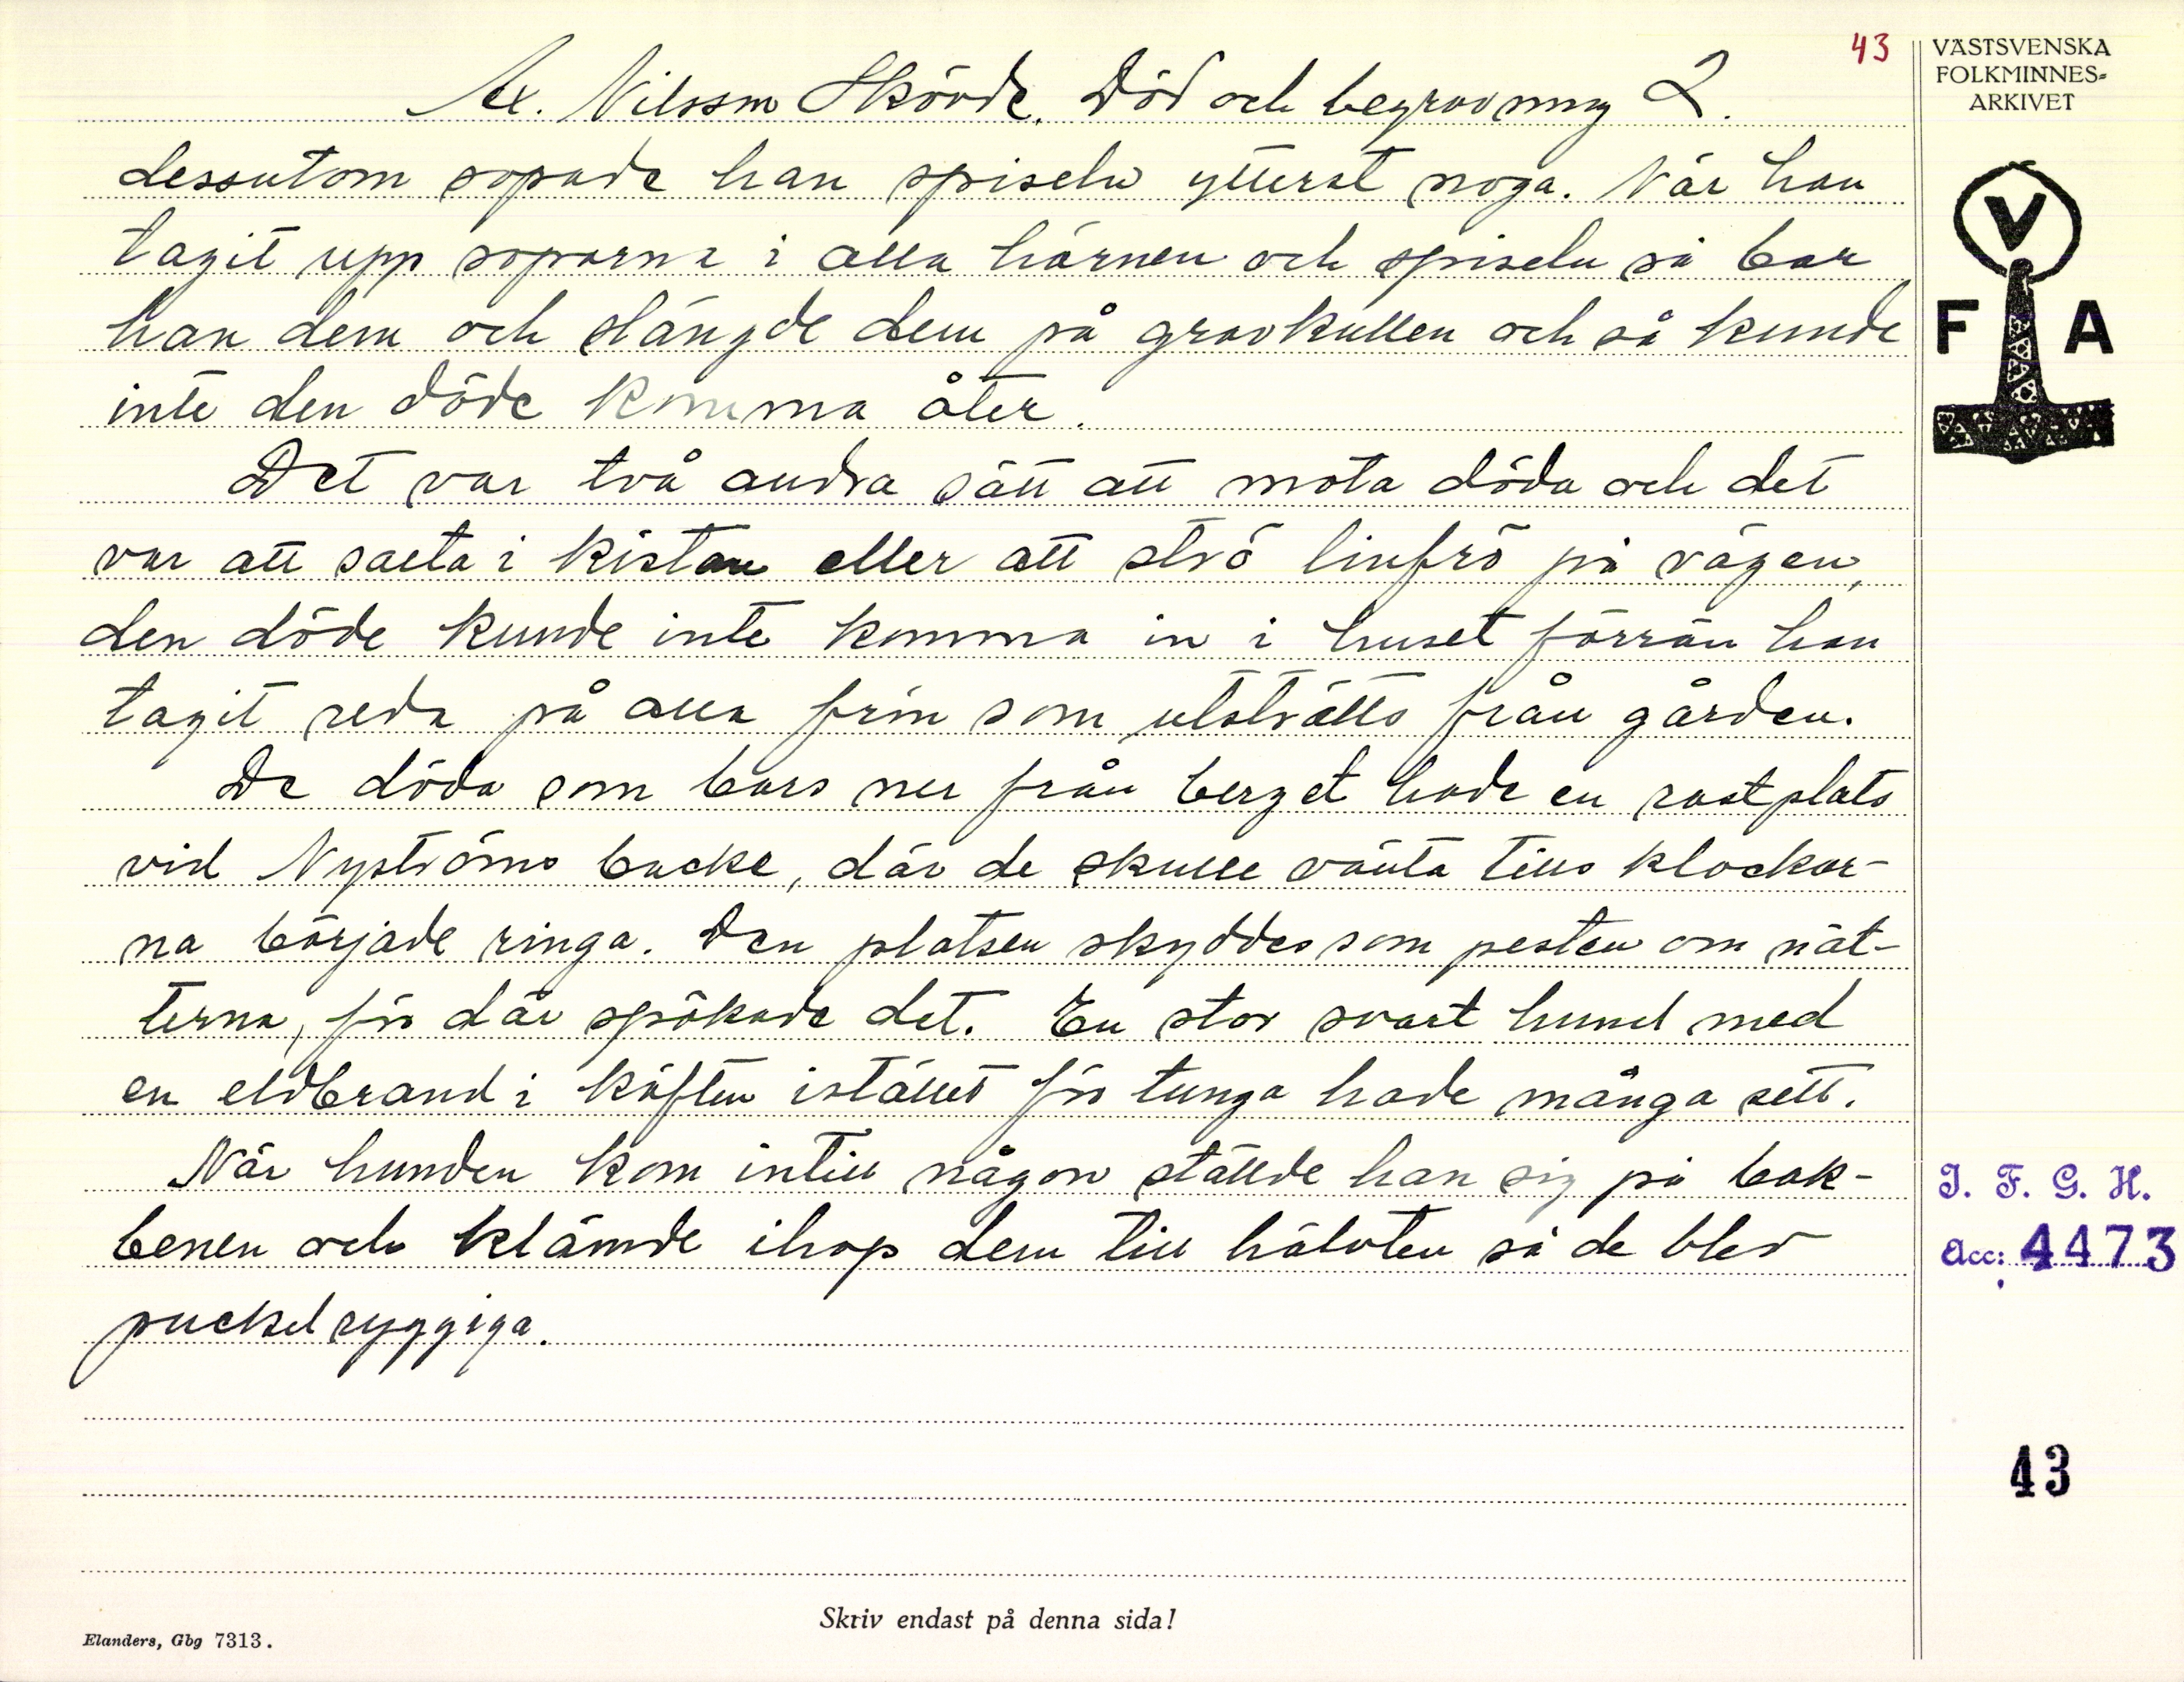 43
VÄSTSVENSKA
FOLKMINNES-
ARKIVET
Ax. Nilsson Skövde. Död och begravning 2.
dessutom sopade han spiseln ytterst noga. När han
tagit upp soporna i alla hörnen och spiseln så bar
han dem och slängde dem på gravkullen och så kunde
inte den döde komma åter.
Det var två andra sätt att mota döda och det
var att salta i kistan eller att strö linfrö på vägen,
den döde kunde inte komma in i huset förrän han
tagit reda på alla frön som utströtts från gården.
De döda som bars ner från berget hade en rastplats
vid Nyströms backe, där de skulle vänta tills klockor-
na började ringa. Den platsen skyddes som pesten om nät-
terna, för där spökade det. En stor svart hund med
en eldbrand i käften istället för tunga hade många sett.
När hunden kom intill någon ställde han sig på bak-
benen och klämde ihop dem till hälvten så de blev
puckelryggiga.
V
F A
I. F. G. H.
Acc: 4473
43
Skriv endast på denna sida!
Elanders, Gbg 7313.